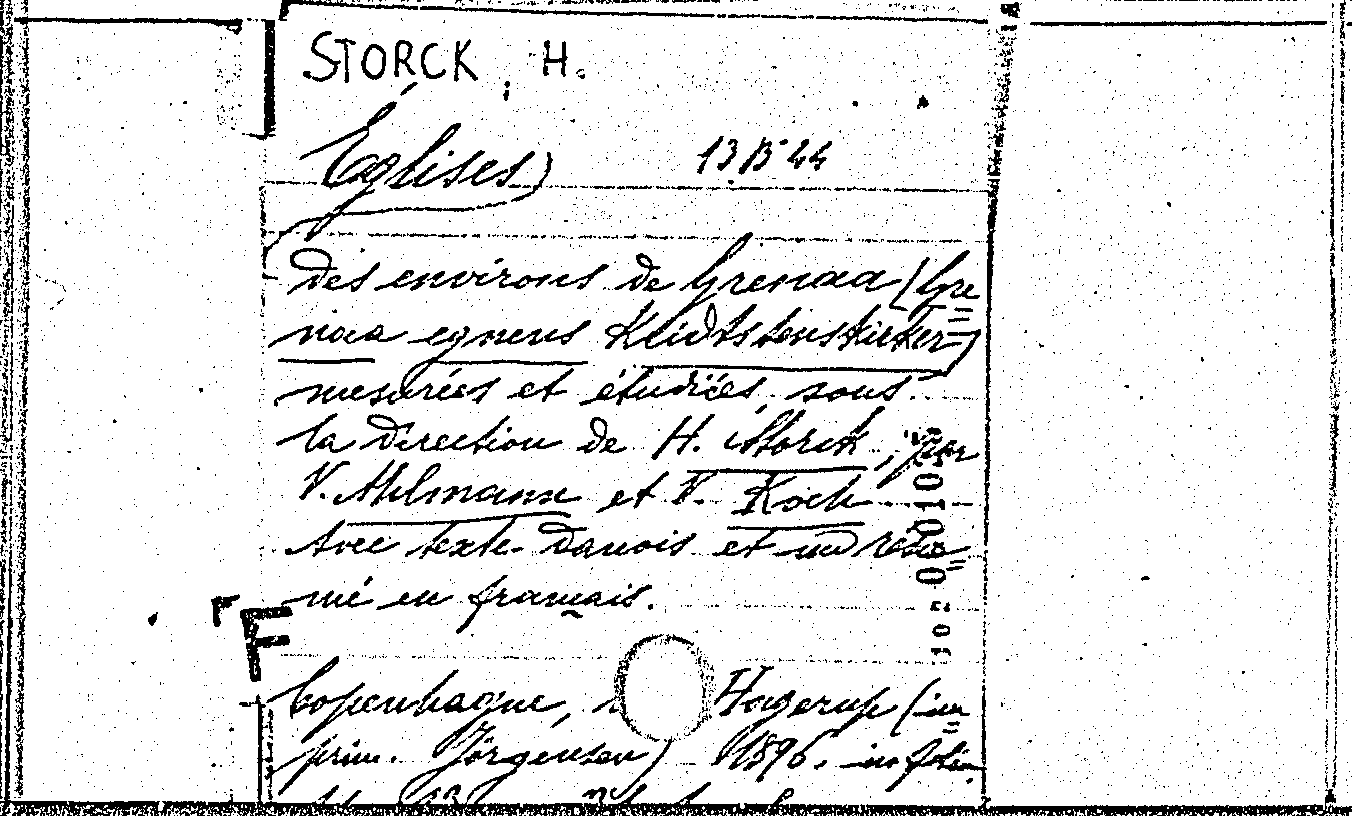 STORCK, H.
Églises)
13 B 44
des environs de Grenaa (Gre=
naa egnens Kridtstenskirker)
mesurées et étudiées sous
la direction de H. Storck, par
V. Ahlmann et V. Koch
Avec texte danois et un résu=
mé en français.
Copenhague, Hagerup (im=
prim. Jörgensen) 1896. in folio